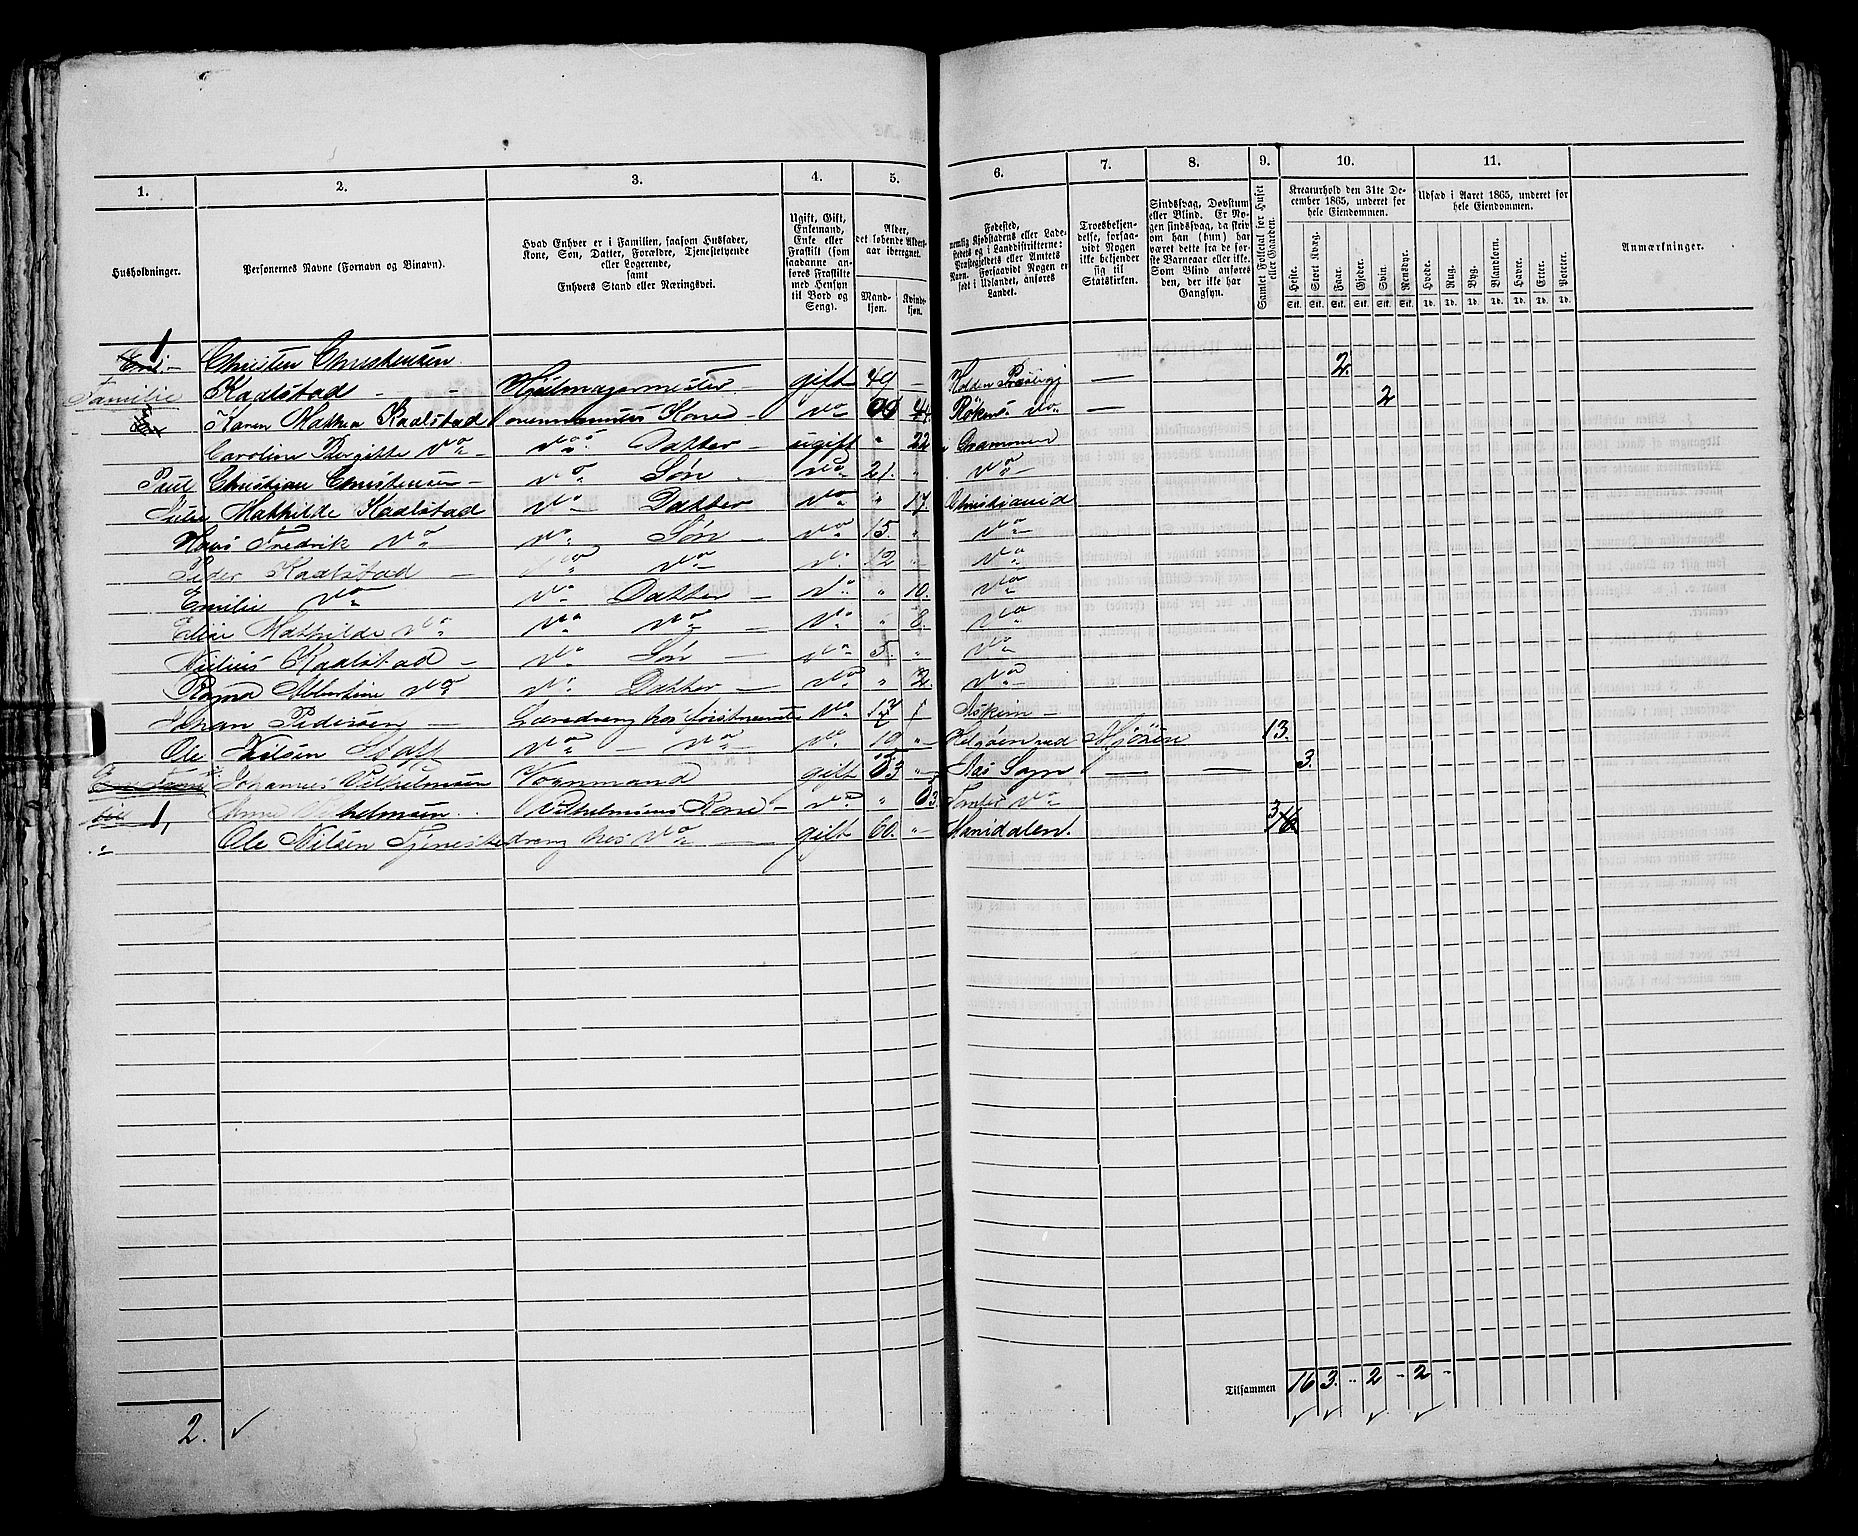 1. 2. 3. 4. 5. 6. 7. 8. 9. 10. 11.
Husholdninger.
Personernes Navne (Fornavn og Binavn).
Hvad Enhver er i Familien, saasom Husfader, Kone, Søn, Datter, Forældre, Tjenestetyende eller Logerende, samt Enhvers Stand eller Næringsvei.
Ugift, Gift, Enkemand, Enke eller Fraskilt (som saadanne anføres Fraskilte med Hensyn til Bord og Seng).
Alder, det løbende Aldersaar iberegnet.
Mandkjøn. Kvindekjøn.
Fødested, nemlig Kjøbstadens eller Ladestedets og i Landdistrikterne: Præstegjeldets eller Amtets Navn. Forsaavidt Nogen er født i Udlandet, anføres Landet.
Troesbekjendelse, forsaavidt Nogen ikke bekjender sig til Statskirken.
Sindssvag, Døvstum eller Blind. Er Nogen sindssvag, da skrives om han (hun) har været dette fra de første Barneaar eller ikke. Som Blind anføres den, der ikke har Gangsyn.
Samlet Folketal for Huset eller Gaarden.
Kreaturhold den 31te December 1865, underet for hele Eiendommen.
Heste. Stort Kvæg. Faar. Gjeder. Svin. Rensdyr.
Stk. Stk. Stk. Stk. Stk. Stk.
Udsæd i Aaret 1865, underet for hele Eiendommen.
Hvede. Rug. Byg. Blandkorn. Havre. Erter. Poteter.
Td. Td. Td. Td. Td. Td. Td.
Anmærkninger.
1 Christen Christensen 2.
Familie Kaalstad - Hjulmagermester - gift 49 - Holden Præstegj — 2
Karen Mathea Kaalstad Kone - do 44 Røken do —
Caroline Birgitte do - do Datter - ugift " 22 Drammen
Paul Christian Christensen - do Søn - do 21. " do -
Julie Mathilde Kaalstad do Datter do " 17. Christiania
Hans Fredrik do do Søn - do 15. " do -
Peder Kaalstad - do do do 12 " do
Emilie do do Datter - do " 10. do
Elise Mathilde do do do - do " 8. do
Julius Kaalstad - do Søn - do 5. " do
Ragna Albertine do do Datter - do " 2. do
Johan Pedersen - Læredreng hos do 17 Askim -
Ole Nilsen do - do do 19 " Helgøen ved Mjøsen 13.
Johannes Vilhelmsen Vognmand gift 53 " Aas Sogn — — 3.
1, Vilhelmsen Vilhelmsens Kone - do " do
" Ole Nilsen Tjenestedreng hos do — gift 60. " 3/16
Tilsammen 16 3. " 2 - 2 -
2.